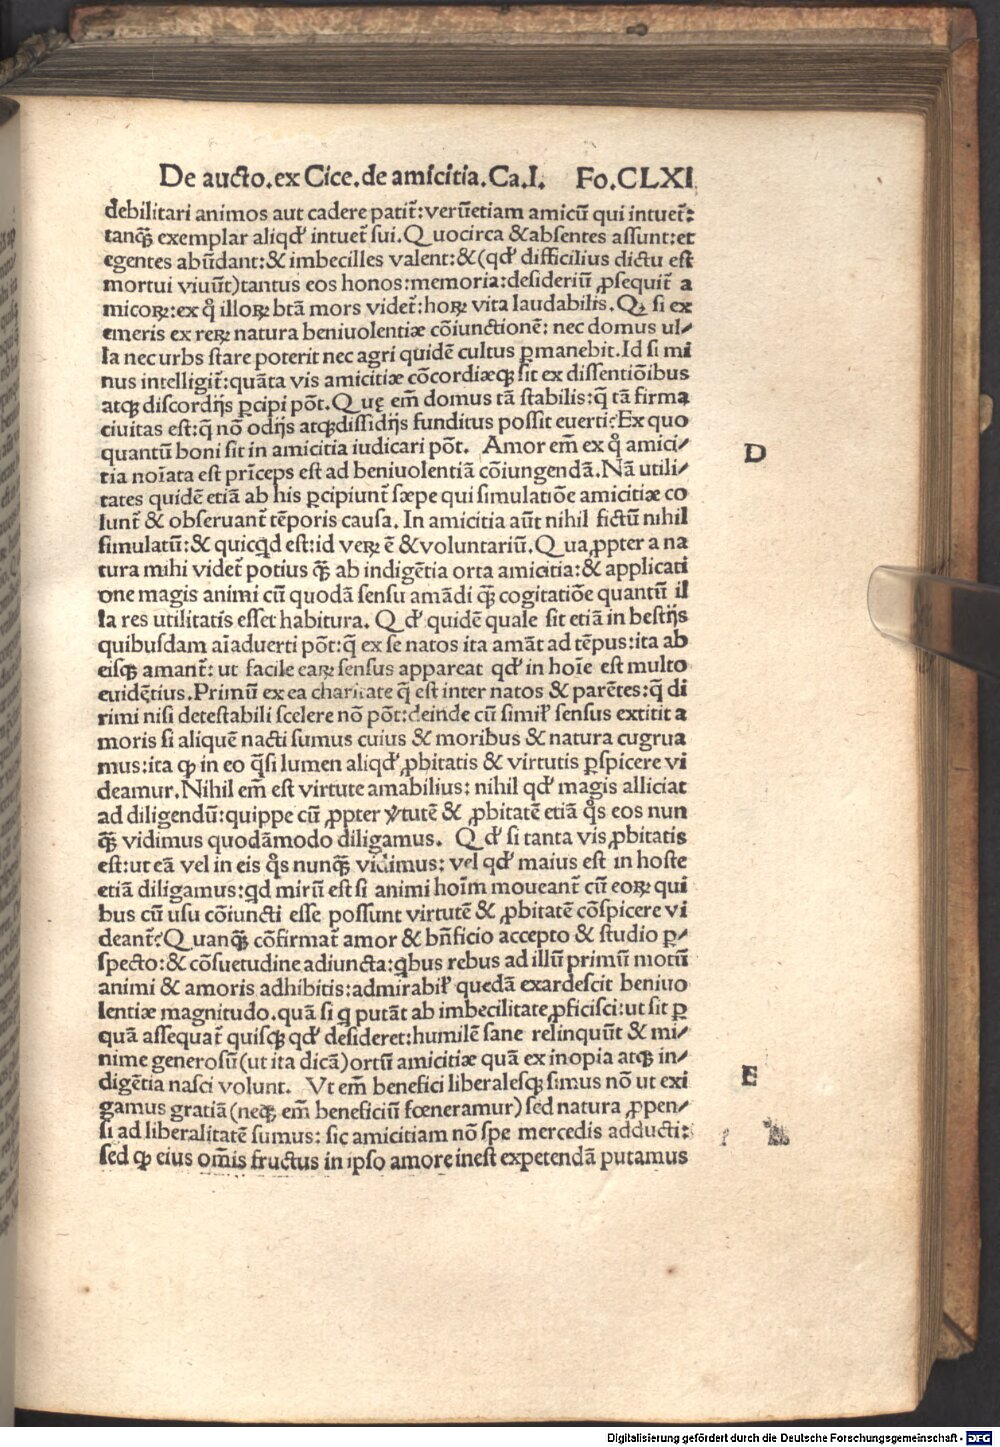 De aucto.ex Cice.de amicitia.Ca.I. Fo.CLXI
debilitari animos aut cadere patit᷑:verũetiam amicũ qui intuet᷑:
tanq̃ꝫ exemplar aliqd' intuet᷑ sui.Quocirca &absentes assunt:et
egentes abũdant:& imbecilles valent:&(qd' difficilius dictu est
mortui viuũt)tantus eos honos:memoria:desideriũ ꝓsequit᷑ a
micoꝝ:ex qͥ illoꝝ btã mors videt᷑:hoꝝ vita laudabilis.Qꝫ si ex
emeris ex reꝝ natura beniuolentiæ cõiunctionẽ: nec domus ul⸗
la nec urbs stare poterit nec agri quidẽ cultus ꝑmanebit.Id si mi
nus intelligit᷑:quãta vis amicitiæ cõcordiæqꝫ sit ex dissentiõibus
atqꝫ discordijs ꝑcipi põt.Quę em̃ domus tã stabilis:q̃ tã firma
ciuitas est:q̃ nõ odijs atqꝫdissidijs funditus possit euerti?Ex quo
quantũ boni sit in amicitia iudicari põt. Amor em̃ ex qͥ amici⸗
D
tia noĩata est prĩceps est ad beniuolentiã cõiungendã.Nã utili⸗
tates quidẽ etiã ab his ꝑcipiunt᷑ sæpe qui simulatiõe amicitiæ co
lunt᷑ & obseruant᷑ tẽporis causa. In amicitia aũt nihil fictũ nihil
simulatũ:& quicꝗd est:id veꝝ ẽ &voluntariũ.Quaꝓpter a na
tura mihi videt᷑ potius q̃ꝫ ab indigẽtia orta amicitia:& applicati
one magis animi cũ quodã sensu amãdi q̃ꝫ cogitatiõe quantũ il
la res utilitatis esset habitura. Qd' quidẽ quale sit etiã in bestijs
quibusdam aĩaduerti põt:q̃ ex se natos ita amãt ad tẽpus:ita ab
eisqꝫ amant᷑: ut facile eaꝝ sensus appareat qd' in hoĩe est multo
euidẽtius.Primũ ex ea charitate q̃ est inter natos & parẽtes:q̃ di
rimi nisi detestabili scelere nõ põt:deinde cũ simil' sensus extitit a
moris si aliquẽ nacti sumus cuius & moribus & natura cugrua
mus:ita ꝙ in eo q̃si lumen aliqd' ꝓbitatis & virtutis ꝑspicere vi
deamur.Nihil em̃ est virtute amabilius: nihil qd' magis alliciat
ad diligendũ:quippe cũ ꝓpter v̾tutẽ & ꝓbitatẽ etiã qͦs eos nun
q̃ꝫ vidimus quodãmodo diligamus. Qd' si tanta vis ꝓbitatis
est:ut eã vel in eis qͦs nunq̃ꝫ vidimus: vel qd' maius est in hoste
etiã diligamus:ꝗd mirũ est si animi hoĩm moueant᷑ cũ eoꝝ qui
bus cũ usu cõiuncti esse possunt virtutẽ & ꝓbitatẽ cõspicere vi
deant᷑?Quanq̃ꝫ cõfirmat᷑ amor & bñficio accepto & studio ꝑ⸗
specto:& cõsuetudine adiuncta:ꝗbus rebus ad illũ primũ motũ
animi & amoris adhibitis:admirabil' quedã exardescit beniuo
lentiæ magnitudo.quã si ꝗ putãt ab imbecilitate ꝓficisci:ut sit ꝑ
quã assequat᷑ quisqꝫ qd' desideret:humilẽ sane relinquũt & mi⸗
nime generosũ(ut ita dicã)ortũ amicitiæ quã ex inopia atqꝫ in⸗
digẽtia nasci volunt. Vt em̃ benefici liberalesqꝫ simus nõ ut exi
E
gamus gratiã(neqꝫ em̃ beneficiũ fœneramur)sed natura ꝓpen⸗
si ad liberalitatẽ sumus: sic amicitiam nõ spe mercedis adducti:
sed ꝙ eius om̃is fructus in ipso amore inest expetendã putamus
Digitalisierung gefördert durch die Deutsche Forschungsgemeinschaft - DFG